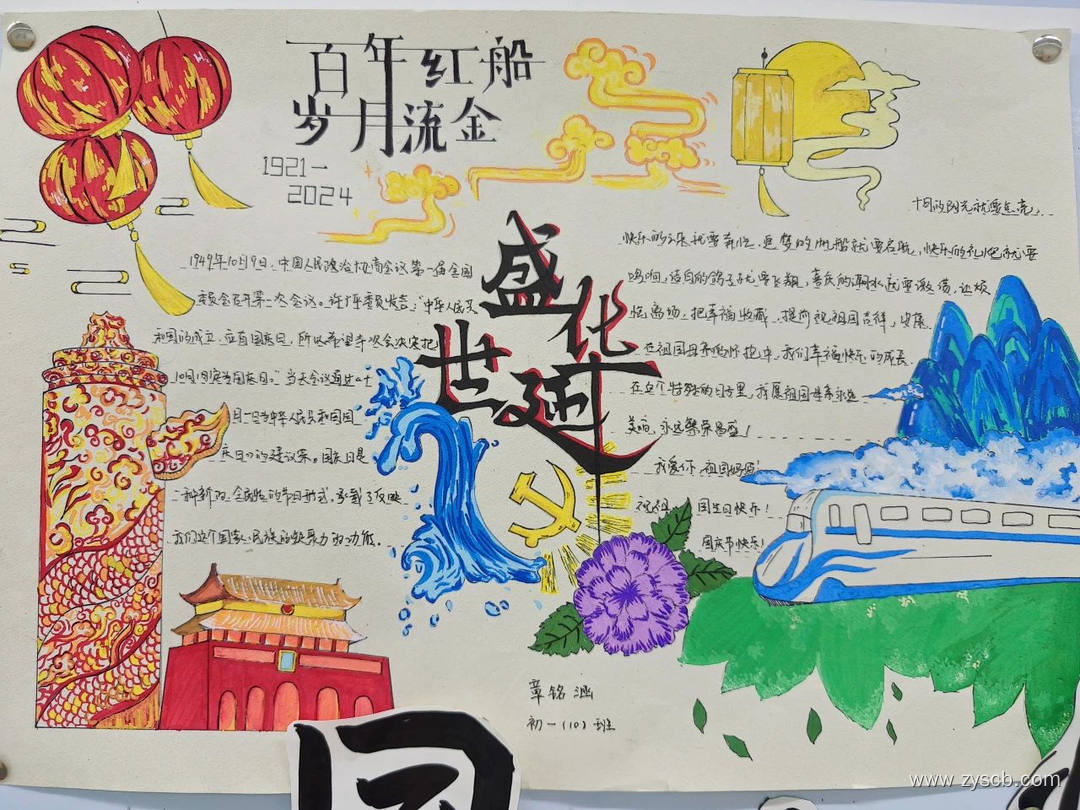 百年红船
岁月流金
1921-
2024
盛世华延
1949年10月9日,中国人民政治协商会议第一届全国
委员会召开第一次会议。许广平委员发言:“中华人民共
和国的成立,应有国庆日,所以希望本次会议决定把
10月1日定为国庆日。”当天会议通过“十
月一日为中华人民共和国国
庆日》的建议案。国庆日是
一种新的、全民性的节日形式,承载了反映
我们这个国家、民族的凝聚力的功能。
十月的阳光就要点亮,
快乐的音乐就要奏响,追梦的帆船就要启航,快乐的礼炮就要
鸣响,洁白的鸽子就要飞翔,喜庆的
离场,把幸福收藏,提前祝祖国吉祥,安康
在祖国母亲的怀抱中,我们幸福快乐的成长
在这个特殊的日子里,我愿祖国母亲永远
美丽,永远繁荣昌盛!
我爱你,祖国妈妈!
祝祖国生日快乐!
国庆节快乐!
章铭涵
初一(10)班
国
www.zyscb.com